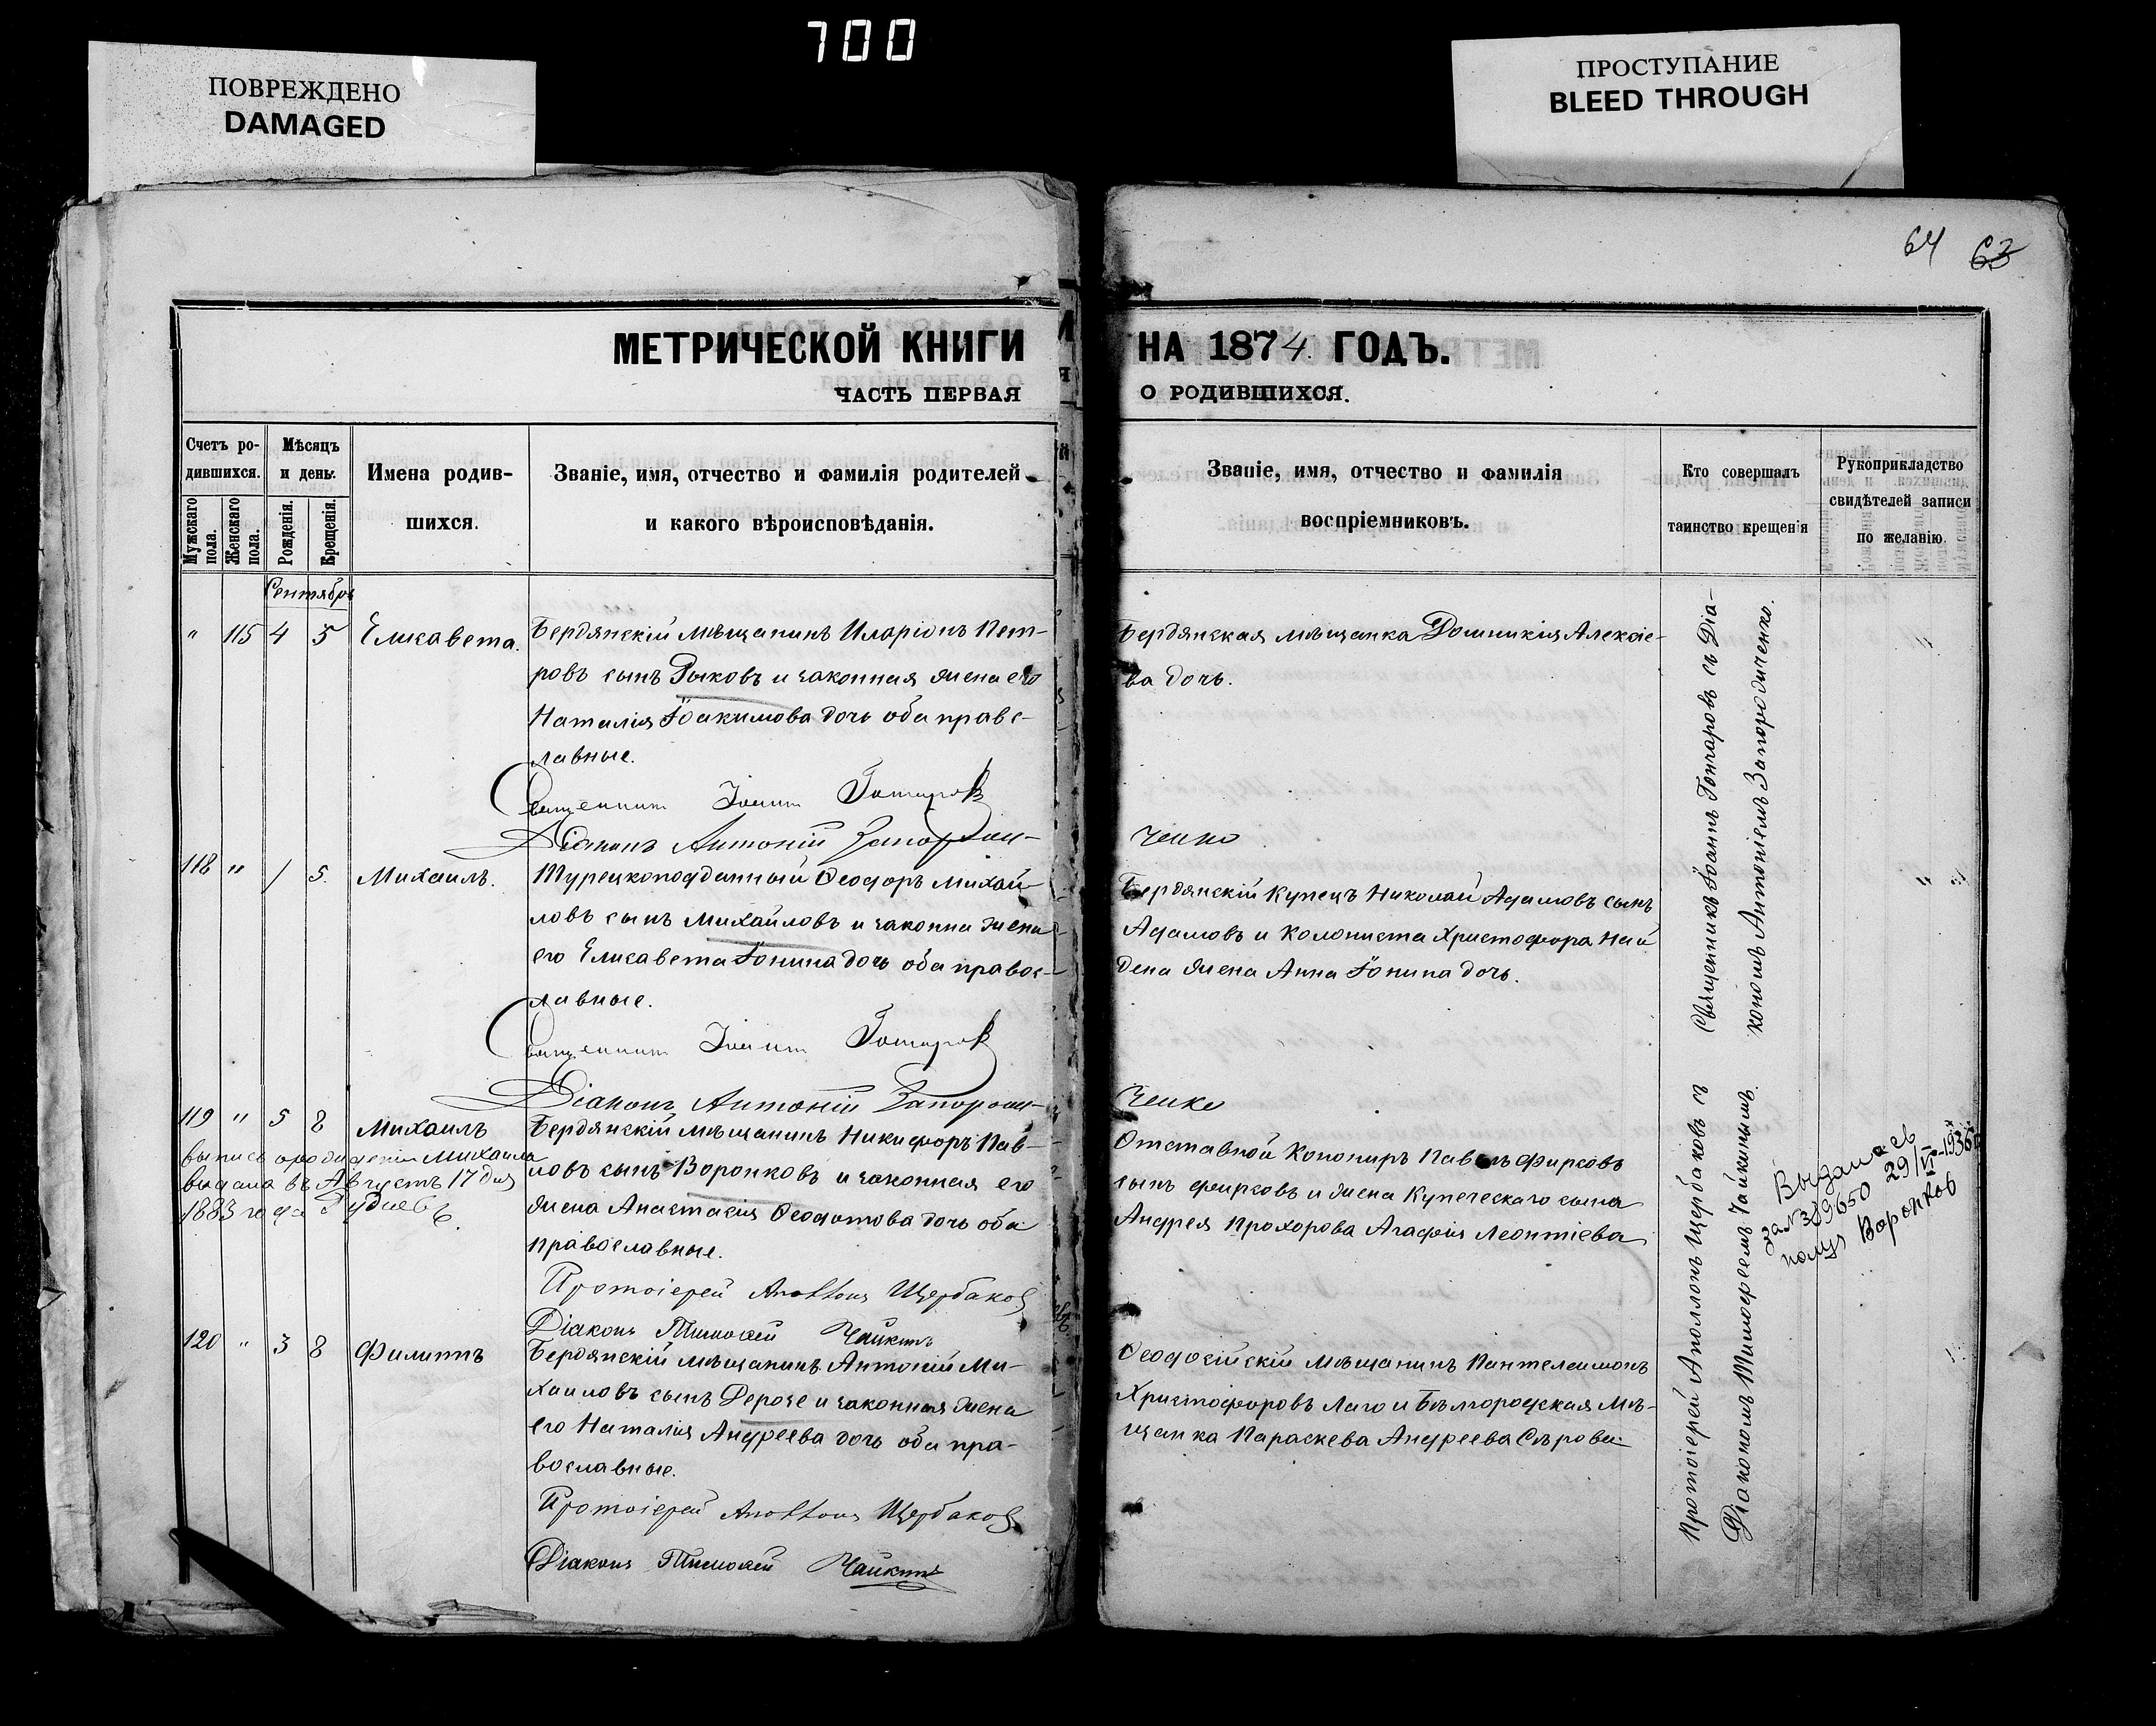 700
ПОВРЕЖДЕНО
DAMAGED
ПРОСТУПАНИЕ
BLEED THROUGH
64 63
МЕТРИЧЕСКОЙ КНИГИ
ЧАСТЬ ПЕРВАЯ
Счетъ ро-
дившихся.
Мужскаго пола.
Женскаго пола.
Мѣсяцъ
и день.
Рожденія.
Крещенія.
Имена родив-
шихся.
Званіе, имя, отчество и фамилія родителей
и какого вѣроисповѣданія.
Сентябрь
" 115 4 5 Елисавета.
Бердянскій мѣщанинъ Иларіонъ Пет-
ровъ сынъ Рыковъ и законная жена его
Наталія Іоакимова дочь оба правс-
лавные.
Священникъ Іоаннъ Гончаровъ
Діаконъ Антоній Запорожи-
118 " 1 5. Михаилъ.
Турецкоподданный Ѳеодоръ Михай-
ловъ сынъ Михайловъ и законна жена
его Елисавета Іонина дочь оба правос-
лавные.
Священникъ Іоаннъ Гончаровъ
Діаконъ Антоній Запорожи-
119 " 5 8 Михаилъ
выпись о рожденіи Михаила
выдана въ Августѣ 17 дня
1883 года
Бердянскій мѣщанинъ Никифоръ Пав-
ловъ сынъ Воронковъ и законная его
жена Анастасія Ѳеодотова дочь оба
православные.
Протоіерей Аполлонъ Щербаковъ
Діаконъ Тимоѳей Чайкинъ
120 " 3 8 Филиппъ
Бердянскій мѣщанинъ Антоній Ми-
хаиловъ сынъ Дерозе и законная жена
его Наталія Андреева дочь оба пра-
вославные.
Протоіерей Аполлонъ Щербаковъ
Діаконъ Тимоѳей Чайкинъ
НА 1874. ГОДЪ.
О РОДИВШИХСЯ.
Званіе, имя, отчество и фамилія
воспріемниковъ.
Кто совершалъ
таинство крещенія
Рукоприкладство
свидѣтелей записи
по желанію.
Бердянская мѣщанка Домникія Алексіе-
ва дочь.
ченко
Бердянскій Купецъ Николай Адамовъ сынъ
Адамовъ и колониста Христофора Най
дена жена Анна Іонина дочь.
ченко
Отставной Канониръ Павелъ Фирсовъ
сынъ Фирсовъ и жена Купеческаго сына
Андрея Прохорова Агафія Леонтіева
Ѳеодосійскій мѣщанинъ Пантелеимонъ
Христофоровъ Лаго и Бѣлгородская Мѣ-
щанка Параскева Андреева Сѣрова
Священникъ Іоаннъ Гончаровъ съ Діа-
кономъ Антоніемъ Запорожченко.
Протоіерей Аполлонъ Щербаковъ съ
Діакономъ Тимофеемъ Чайкинымъ.
Выдана св
за № 389650 29/VI-1936 г.
Воронков